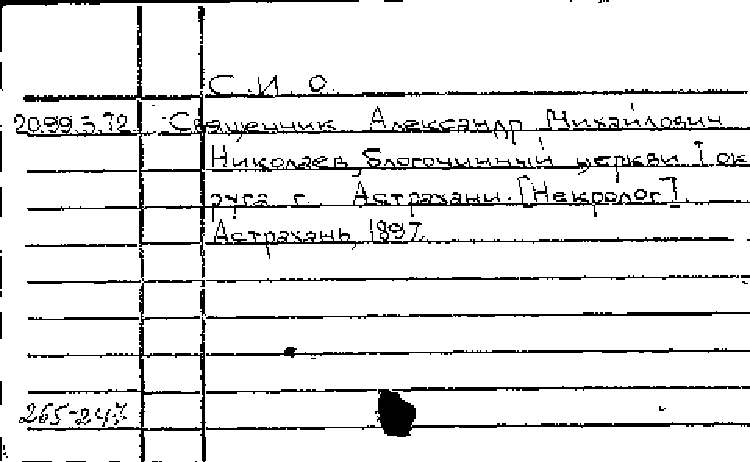 С. И. О.
20.99.3.72 Священник Александр Михайлович
Николаев, благочинный церкви I ок
руга г. Астрахани. [Некролог].
Астрахань, 1897.